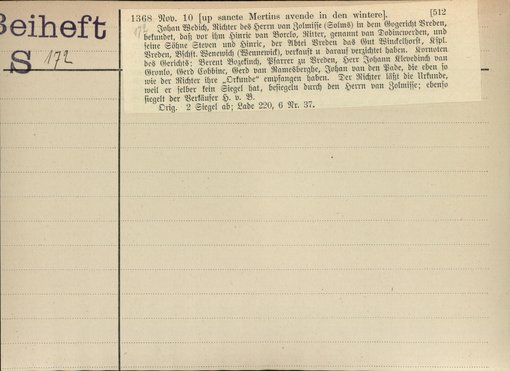 Beiheft
S 172
1368 Nov. 10 [up sancte Mertins avende in den wintere]. [512
172
Johan Wedich, Richter des Herrn van Zolmisse (Solms) in dem Gogericht Vreden,
bekundet, daß vor ihm Hinric van Borclo, Ritter, genannt van Dodincwerden, und
seine Söhne Steven und Hinric, der Abtei Vreden das Gut Winkelhorst, Kspl.
Vreden, Bschft. Wenewich (Wennewick), verkauft u darauf verzichtet haben. Kornoten
des Gerichts: Berent Bozekinch, Pfarrer zu Vreden, Herr Johann Klevedinch van
Gronlo, Gerd Lobbinc, Gerd van Ramesberghe, Johan van den Pade, die eben so
wie der Richter ihre „Orkunde“ empfangen haben. Der Richter läßt die Urkunde,
weil er selber kein Siegel hat, besiegeln durch den Herrn van Zolmisse; ebenso
siegelt der Verkäufer H. v. B.
Orig. 2 Siegel ab; Lade 220, 6 Nr. 37.